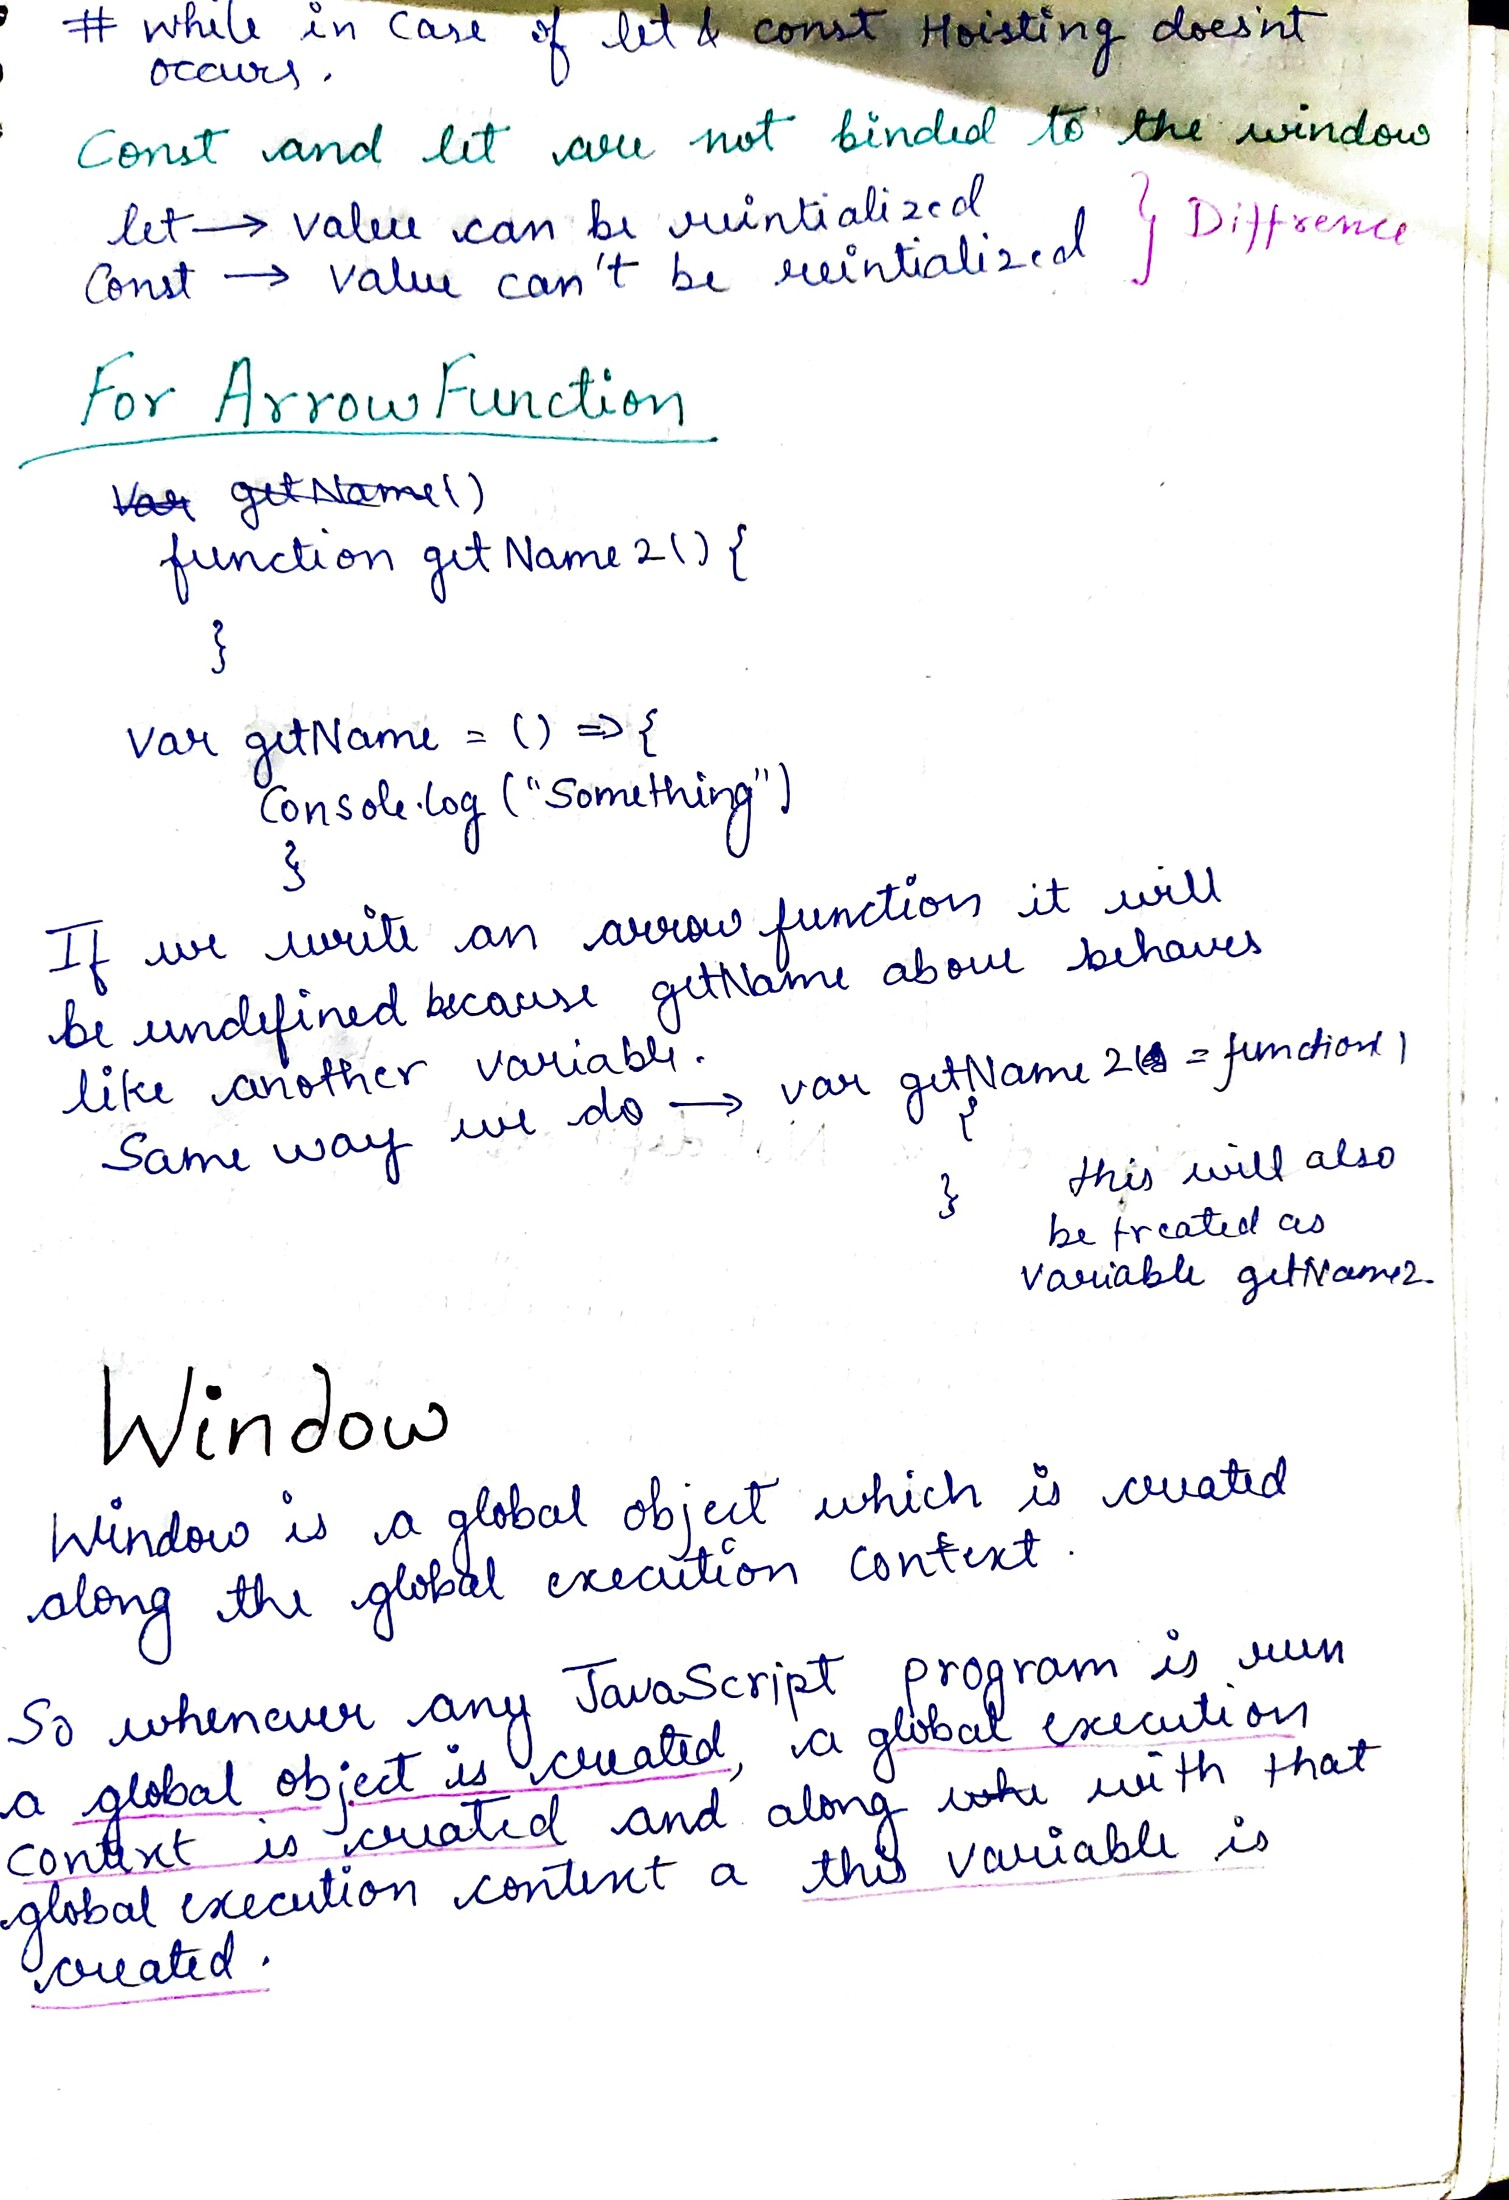 # while in case of let & const Hoisting does'nt
occurs.
Const and let are not binded to the window
let → value can be reintialized
Const → value can't be reintialized } Diffrence
For Arrow Function
Var getName()
function getName2() {
}
Var getName = () => {
Console.log ("Something")
}
If we write an arrow function it will
be undefined because getName above behaves
like another variable.
Same way we do → var getName2 = function
{
} this will also
be treated as
variable getName2.
Window
Window is a global object which is created
along the global execution context.
So whenever any JavaScript program is run
a global object is created, a global execution
context is created and along with that
global execution context a this variable is
created.